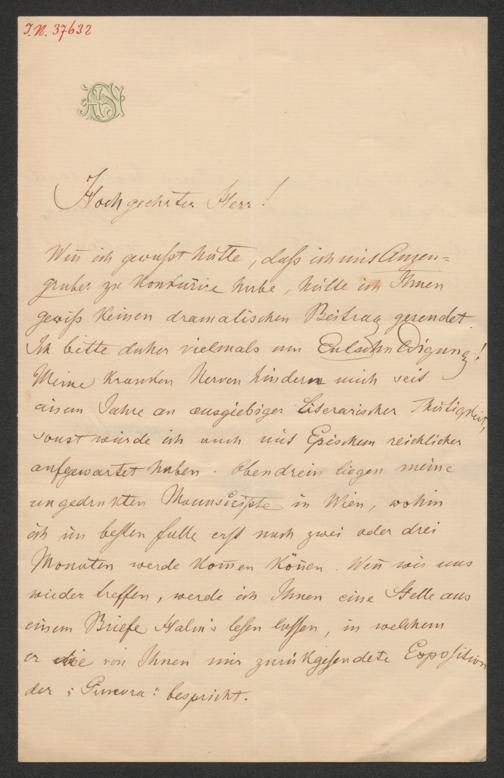 I.N. 37632
Hochgeehrter Herr!
Weñ ich gewußt hätte, daß ich mit Anzen=
gruber zu konkurire habe, hätte ich Ihnen
gewiß keinen dramatischen Beitrag gesendet.
Ich bitte daher vielmals um Entschuldigung!
Meine kranken Nerven hindern mich seit
einem Jahre an ausgiebiger literarischer Thätigkeit,
sonst würde ich auch mit Epischem reichlicher
aufgewartet haben. Obendrein liegen meine
ungedrukten Manuskripte in Wien, wohin
ich im besten Falle erst nach zwei oder drei
Monaten werde kom̄en kön̄en. Weñ wir uns
wieder treffen, werde ich Ihnen eine Stelle aus
einem Briefe Halm's lesen lassen, in welchem
er die von Ihnen mir zurükgesendete Exposition
der bespricht.